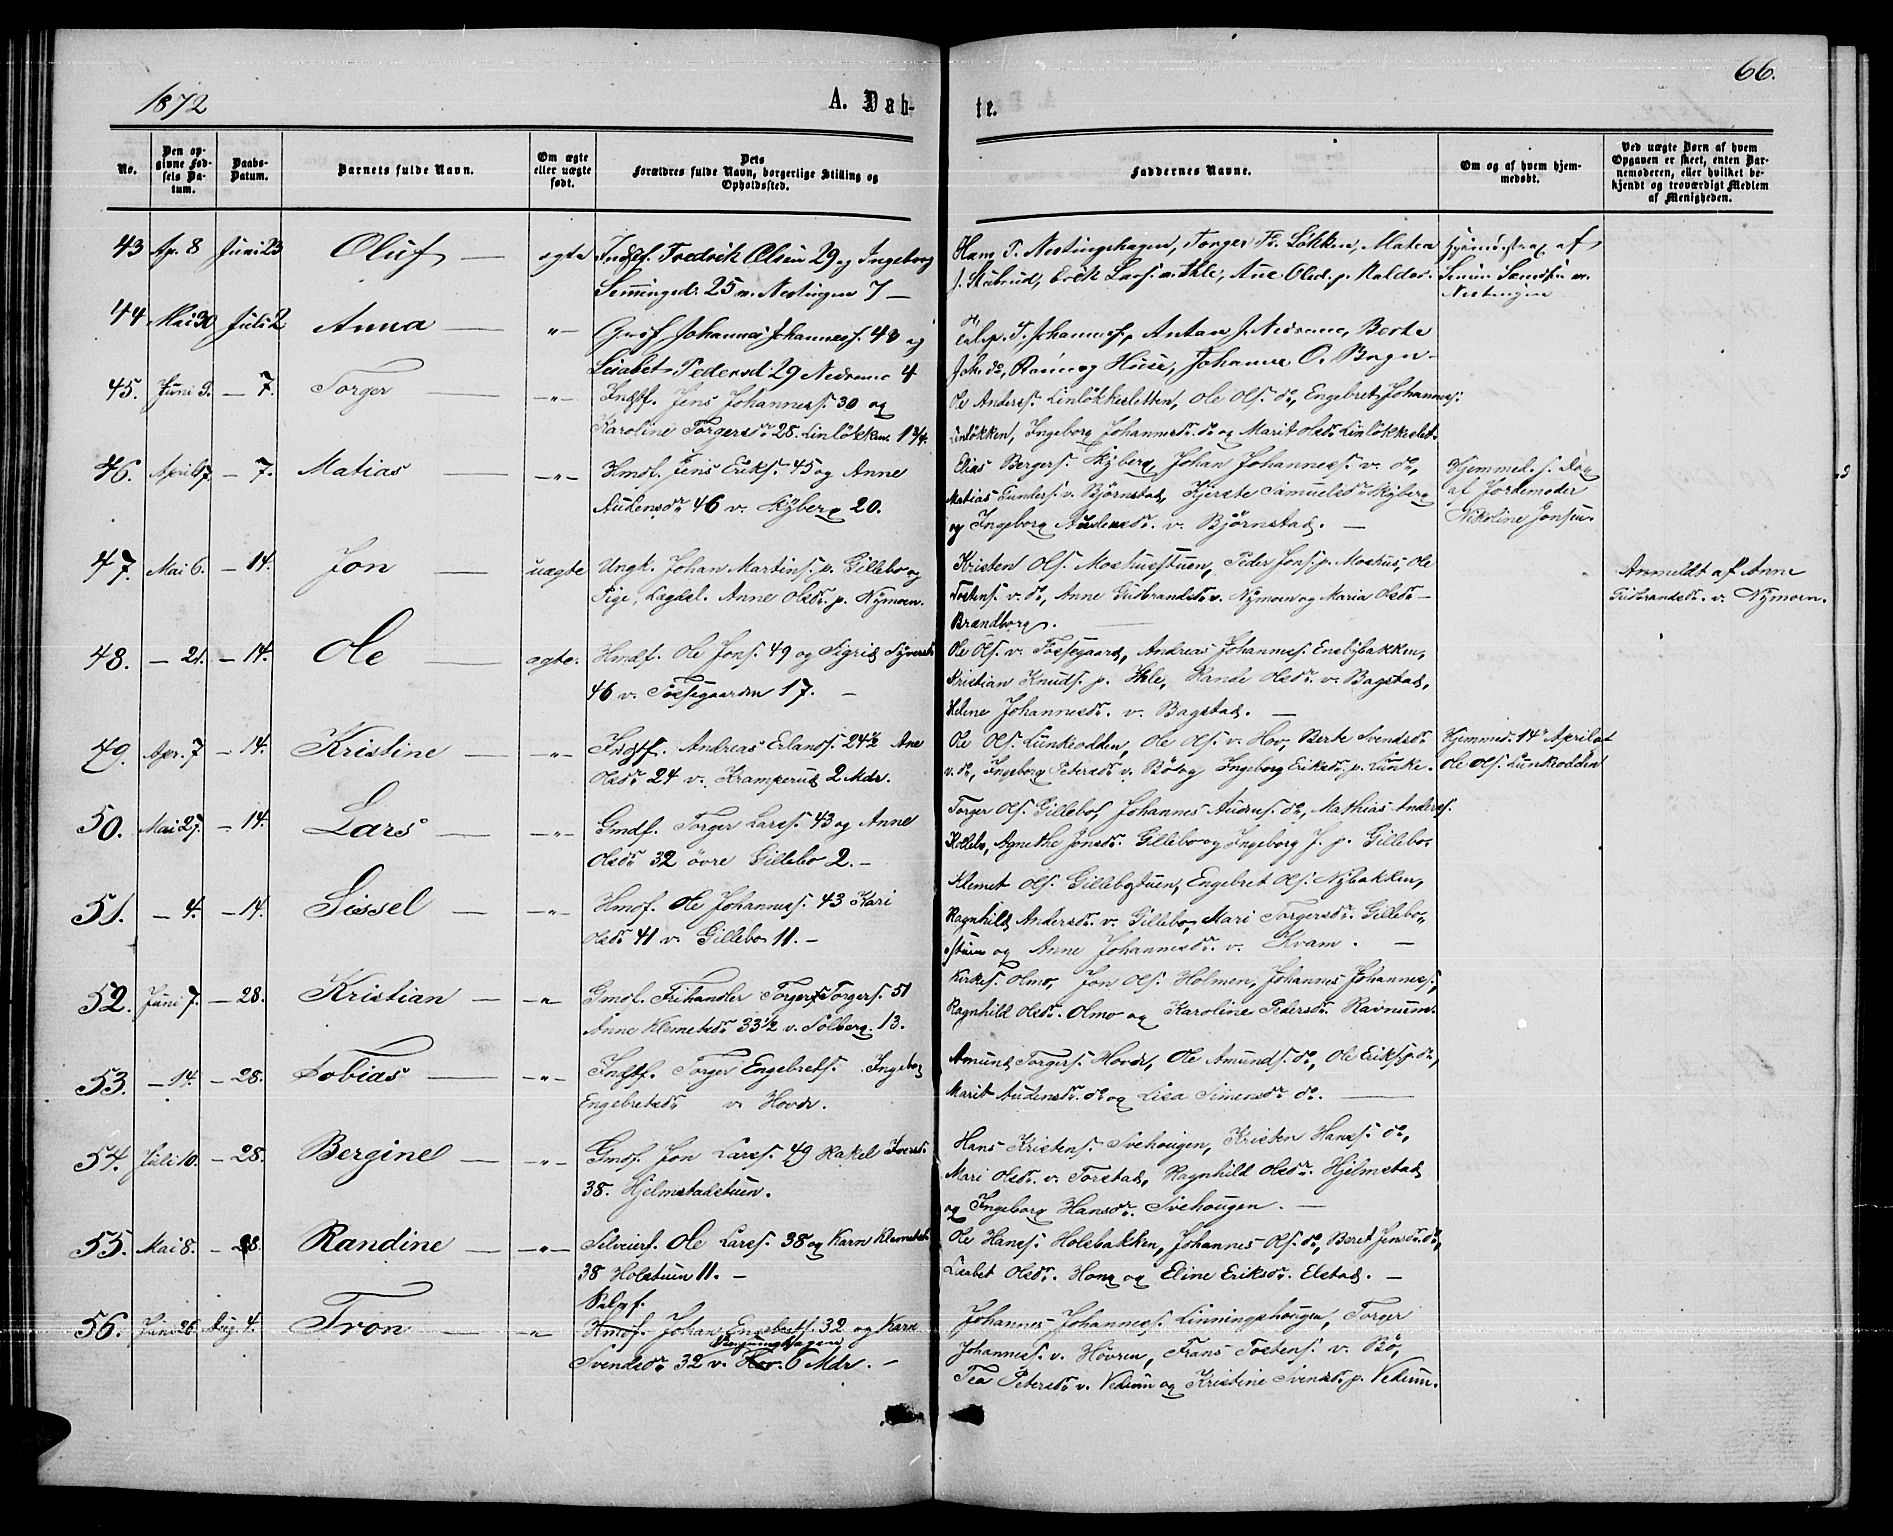 1872 A. Dåb- te. 66.
No. Den opgivne Fødsels Datum. Daabs-Datum. Barnets fulde Navn. Om ægte eller uægte født. Dets Forældres fulde Navn, borgerlige Stilling og Opholdssted. Faddernes Navne. Om og af hvem hjemmedøbt. Ved uægte Børn af hvem Opgaven er skeet, enten Barnemoderen, eller hvilket bekjendt og troværdigt Medlem af Menigheden.
43 Ap. 8 Juni 23 Oluf — ægte Indst. Fredrik Olsen 29 og Ingeborg
Semmingsd. 25 v. Nestingen 7 —
Hans T. Nestingshagen, Torger Fr. Løkken, Matea
Erik Lars. v. Ihle, Ane Olsd. p. Kalder.
af
Nestingen
44 Mai 30 Juli 2 Anna — " Johannes Johanness. 48 og
Lisabet Pedersd. 29 Nedremo 4
T. Johanness., Anton J. Nedremo, Berte
Joh. do, Huse, Johanne O. Bagn
45. Juni 3. — 7. Torger — " Indst. Jens Johanness. 30 og
Karoline Torgersdr. 28. Linløkken 1 3/4.
Ole Anderss. Linløkkesletten, Ole Ols. do, Engebret Johanness.
Linløkken, Ingeborg Johannesdr. do og Marit Olsdr. Linløkkeslet.
46. April 7. — 7. Matias — " Hmdf. Jens Eriks. 45 og Anne
Audensdr 46 v. Kyberg 20.
Elias Bergers. Kyberg, Johan Johanness. v. do,
Matias Gunders. v. Bjørnstad, Kjerste Samuelsdr. Kyberg
og Ingeborg Audensdr. v. Bjørnstad. —
Hjemmed. s. Dag
af Jordemoder
Nikoline Jonsen.
47. Mai 6. — 14. Jon — uægte Ungk. Johan Martins. v. Gillebo og
Pige, Lægdsl. Anne Olsdr. p. Nymoen.
Kristen Ols. Moshusstuen, Peder Jons. p. Moshus, Ole
Tostens. v. do, Anne Gudbrandsdr. v. Nymoen og Maria Olsdr
Brandborg.
Anmeldt af Anne
Gudbrandsdr. v. Nymoen.
48. — 21. — 14. Ole — ægte. Hmdf. Ole Jons. 49 og Sigrid Syversdr.
46 v. Fossegaarden 17. —
Ole Ols. v. Fossegaard, Andreas Johanness. Ensbybakken,
Kristian Knuds. p. Ihle, Rande Olsdr. v. Bagstad,
Helene Johannesdr. v. Bagstad. —
49. Apr. 7 — 14. Kristine — " Indst. Andreas Erlands. 24½ Ane
Olsdr. 24 v. Kramperud 2 Mdr.
Ole Ols. Lunkeodden, Ole Ols. v. Hov, Berte Svendsdr.
v. do, Ingeborg Petersdr. v. Bø og Ingeborg Eriksdr. p. Lunke.
Hjemmed. 14de April af
Ole Ols. Lunkeodden
50. Mai 27. — 14. Lars — " Gmdf. Torger Larss. 43 og Anne
Olsdr 32 øvre Gillebo 2. —
Torger Ols. Gillebo, Johannes Audens. do, Mathias Anderss.
Kollebo, Agnethe Jonsdr. Gillebo og Ingeborg J. p. Gillebo.
51. — 4. — 14. Sissel — " Hmdf. Ole Johanness. 43 Kari
Olsdr 41 v. Gillebo 11. —
Klemet Ols. Gillebostuen, Engebret Ols. Nybakken,
Ragnhild Andersdr. v. Gillebo, Mari Torgersdr. Gillebo-
stuen og Anne Johannesdr. v. Kvam. —
52. Juni 7. — 28. Kristian — " Gmdf. Frihandler Torger Torgers. 51
Anne Klemetsdr. 33½ v. Solberg. 13.
Kirkes. Olmo, Jon Ols. Holmen, Johannes Johanness.,
Ragnhild Olsdr. Olmo og Karoline Pedersdr. Ravnum.
53. — 14. — 28. Tobias — " Indst. Torger Engebrets. Ingeborg
Engebretsdr v. Hovde.
Amund Torgers. Hovde, Ole Amunds. do, Ole Eriks. p. do,
Marit Audensdr. do og Lisa Simensdr do. —
54. Juli 10. — 28. Berginel — " Gmdf. Jon Larss. 49 Rakel Iversdr.
38. Hjelmstadstuen.
Hans Kristens. Svehougen, Kristen Hanss. do,
Mari Olsdr. v. Torstad, Ragnhild Olsdr. Hjelmstad
og Ingeborg Hansdr. Svehougen. —
55. Mai 8. — 28. Randine — " Selveierf. Ole Larss. 38 og Karn Klemetsdr.
38 Holstuen 11. —
Ole Hanss. Holsbakken, Johannes Ols. do, Beret Jensdr. do,
Lisabet Olsdr. Hong og Eline Eriksdr. Elstad. —
56. Juni 26 Aug 4. Tron — " Hmdf. Johan Engebrets. 32 og Karn
Svendsdr 32 v. Hov. 6 Mdr. —
Johannes Johanness. Linningshougen, Torger
Johanness. v. Hovren, Frans Tostens. v. Bø,
Tea Petersdr. v. Vedum og Kristine Svendsd. p. Vedum.